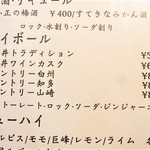 酒・リキュール
正の梅酒 ¥400/すてきなみかん酒
ロック・水割り・ソーダ割り
イボール
井トラディション ¥5
井ワインカスク ¥6
ントリー白州 ¥8
ントリー知多 ¥8
ントリー山崎 ¥8
トレート・ロック・ソーダ・ジンジャーニ
ューハイ
ルピス/モモ/巨峰/レモン/ライム 各